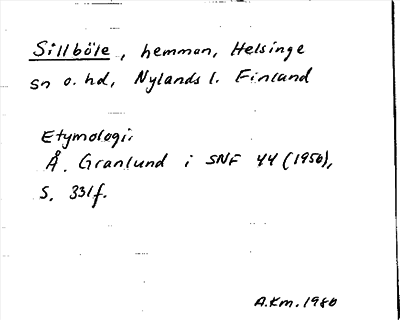 Sillböle, hemman, Helsinge
sn o. hd, Nylands l. Finland
Etymologi:
Å. Granlund i SNF 44 (1956),
s. 331f.
A.Km. 1980